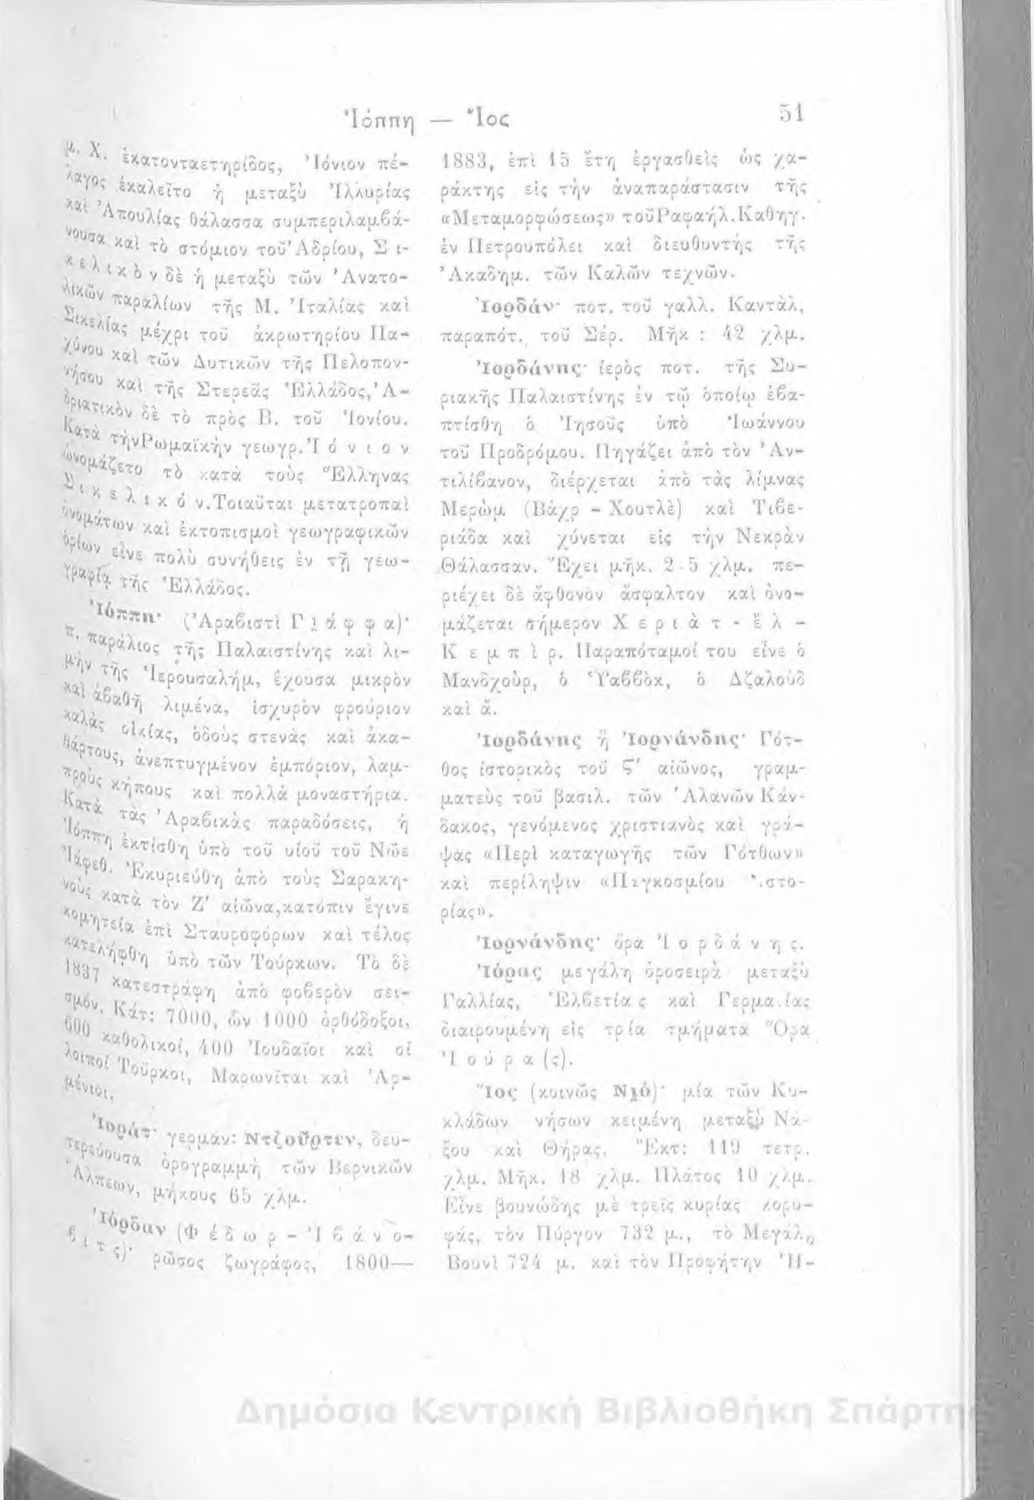 Ἰόππη — Ἴος
51
μ. Χ. ἑκατονταετηρίδος, Ἰόνιον πέ-
λαγος ἐκαλεῖτο ἡ μεταξὺ Ἰλλυρίας
καὶ Ἀπουλίας θάλασσα συμπεριλαμβά-
νουσα καὶ τὸ στόμιον τοῦ Ἀδρίου, Σ ι-
κ ε λ ι κ ὸ ν δὲ ἡ μεταξὺ τῶν Ἀνατο-
λικῶν παραλίων τῆς Μ. Ἰταλίας καὶ
Σικελίας μέχρι τοῦ ἀκρωτηρίου Πα-
χύνου καὶ τῶν Δυτικῶν τῆς Πελοπον-
νήσου καὶ τῆς Στερεᾶς Ἑλλάδος, Ἀ-
δριατικὸν δὲ τὸ πρὸς Β. τοῦ Ἰονίου.
Κατὰ τὴν Ῥωμαϊκὴν γεωγρ. Ἰ ό ν ι ο ν
ὠνομάζετο τὸ κατὰ τοὺς Ἕλληνας
Σ ι κ ε λ ι κ ό ν. Τοιαῦται μετατροπαὶ
ὀνομάτων καὶ ἐκτοπισμοὶ γεωγραφικῶν
ὁρίων εἶνε πολὺ συνήθεις ἐν τῇ γεω-
γραφίᾳ τῆς Ἑλλάδος.
Ἰόππη· (Ἀραβιστὶ Γ ι ά φ φ α)·
π. παράλιος τῆς Παλαιστίνης καὶ λι-
μὴν τῆς Ἱερουσαλήμ, ἔχουσα μικρὸν
καὶ ἀβαθῆ λιμένα, ἰσχυρὸν φρούριον
καλὰς οἰκίας, ὁδοὺς στενὰς καὶ ἀκα-
θάρτους, ἀνεπτυγμένον ἐμπόριον, λαμ-
προὺς κήπους καὶ πολλὰ μοναστήρια.
Κατὰ τὰς Ἀραβικὰς παραδόσεις, ἡ
Ἰόππη ἐκτίσθη ὑπὸ τοῦ υἱοῦ τοῦ Νῶε
Ἰάφεθ. Ἐκυριεύθη ἀπὸ τοὺς Σαρακη-
νοὺς κατὰ τὸν Ζ' αἰῶνα, κατόπιν ἔγινε
κομητεία ἐπὶ Σταυροφόρων καὶ τέλος
κατελήφθη ὑπὸ τῶν Τούρκων. Τὸ δὲ
1837 κατεστράφη ἀπὸ φοβερὸν σει-
σμόν. Κάτ: 7000, ὧν 1000 ὀρθόδοξοι,
600 καθολικοί, 400 Ἰουδαῖοι καὶ οἱ
λοιποὶ Τοῦρκοι, Μαρωνῖται καὶ Ἀρ-
μένιοι.
Ἰοράτ· γερμαν: Ντζοῦρτεν, δευ-
τερεύουσα ὀρογραμμὴ τῶν Βερνικῶν
Ἄλπεων, μήκους 65 χλμ.
Ἰόρδαν (Φ έ δ ω ρ - Ἰ β ά ν ο-
β ι τ ς)· ρῶσος ζωγράφος, 1800—
1883, ἐπὶ 15 ἔτη ἐργασθεὶς ὡς χα-
ράκτης εἰς τὴν ἀναπαράστασιν τῆς
«Μεταμορφώσεως» τοῦ Ραφαήλ. Καθηγ.
ἐν Πετρουπόλει καὶ διευθυντὴς τῆς
Ἀκαδημ. τῶν Καλῶν τεχνῶν.
Ἰορδάν· ποτ. τοῦ γαλλ. Καντάλ,
παραπότ. τοῦ Σέρ. Μῆκ : 42 χλμ.
Ἰορδάνης· ἱερὸς ποτ. τῆς Συ-
ριακῆς Παλαιστίνης ἐν τῷ ὁποίῳ ἐβα-
πτίσθη ὁ Ἰησοῦς ὑπὸ Ἰωάννου
τοῦ Προδρόμου. Πηγάζει ἀπὸ τὸν Ἀν-
τιλίβανον, διέρχεται ἀπὸ τὰς λίμνας
Μερὼμ (Βάχρ - Χουτλὲ) καὶ Τιβε-
ριάδα καὶ χύνεται εἰς τὴν Νεκρὰν
Θάλασσαν. Ἔχει μῆκ. 2-5 χλμ. πε-
ριέχει δὲ ἄφθονὸν ἄσφαλτον καὶ ὀνο-
μάζεται σήμερον Χ ε ρ ι ὰ τ - ἒ λ -
Κ ε μ π ὶ ρ. Παραπόταμοί του εἶνε ὁ
Μανδχούρ, ὁ Ὑαββὸκ, ὁ Δζαλοὺδ
καὶ ἄ.
Ἰορδάνης ἢ Ἰορνάνδης· Γότ-
θος ἱστορικὸς τοῦ Ϛ' αἰῶνος, γραμ-
ματεὺς τοῦ βασιλ. τῶν Ἀλανῶν Κάν-
δακος, γενόμενος χριστιανὸς καὶ γρά-
ψας «Περὶ καταγωγῆς τῶν Γότθων»
καὶ περίληψιν «Παγκοσμίου ἱστο-
ρίας».
Ἰορνάνδης· ὅρα Ἰ ο ρ δ ά ν η ς.
Ἰόρας μεγάλη ὀροσειρὰ μεταξὺ
Γαλλίας, Ἑλβετίας καὶ Γερμανίας
διαιρουμένη εἰς τρία τμήματα Ὅρα
Ἰ ο ύ ρ α (ς).
Ἴος (κοινῶς Νιό)· μία τῶν Κυ-
κλάδων νήσων κειμένη μεταξὺ Νά-
ξου καὶ Θήρας. Ἔκτ: 119 τετρ.
χλμ. Μῆκ. 18 χλμ. Πλάτος 10 χλμ.
Εἶνε βουνώδης μὲ τρεῖς κυρίας κορυ-
φάς, τὸν Πύργον 732 μ., τὸ Μεγάλο
Βουνὶ 724 μ. καὶ τὸν Προφήτην Ἠ-
Δημόσια Κεντρική Βιβλιοθήκη Σπάρτης